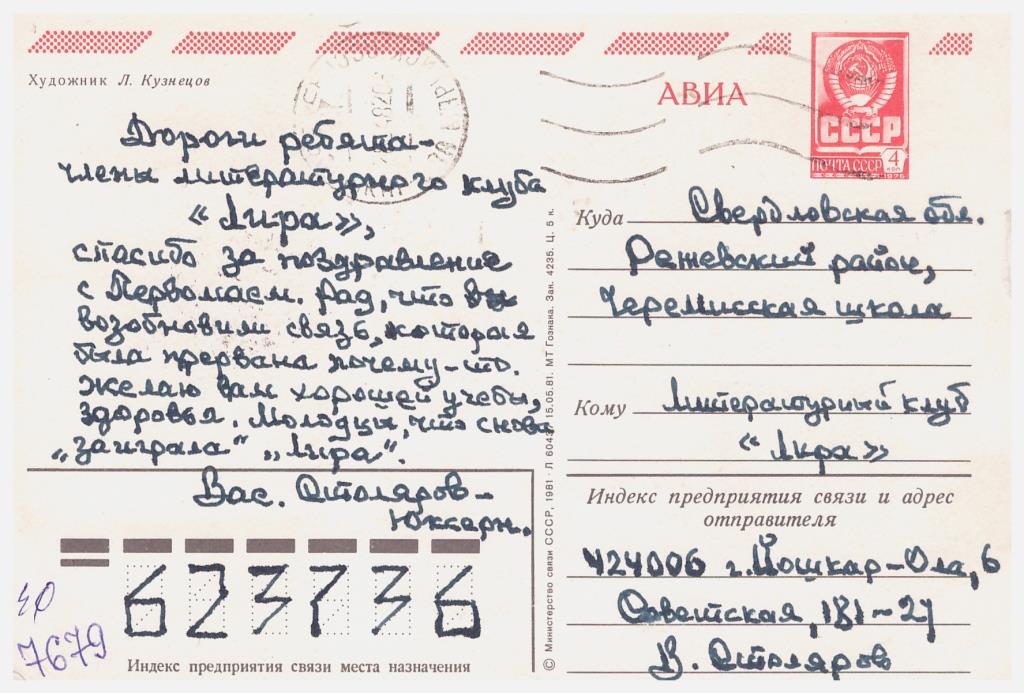 Художник Л. Кузнецов
АВИА
СССР
ПОЧТА СССР 4 КОП
1976
Дороги ребята-
члены литературного клуба
«Лира»,
спасибо за поздравление
с Первомаем. Рад, что вы
возобновили связь, которая
была прервана почему-то.
Желаю вам хорошей учебы,
здоровья. Молодцы, что снова
„заиграла" „Лира".
Вас. Столяров-
Юксерн.
623736
Индекс предприятия связи места назначения
ЕО
7679
© Министерство связи СССР, 1981 · Л 6043 15.05.81. МТ Гознака. Зак. 4235. Ц. 5 к.
Куда Свердловская обл.
Режевский район,
Черемисская школа
Кому Литературный клуб
«Лира»
Индекс предприятия связи и адрес
отправителя
424006 г. Йошкар-Ола, 6
Советская, 181-27
В. Столяров